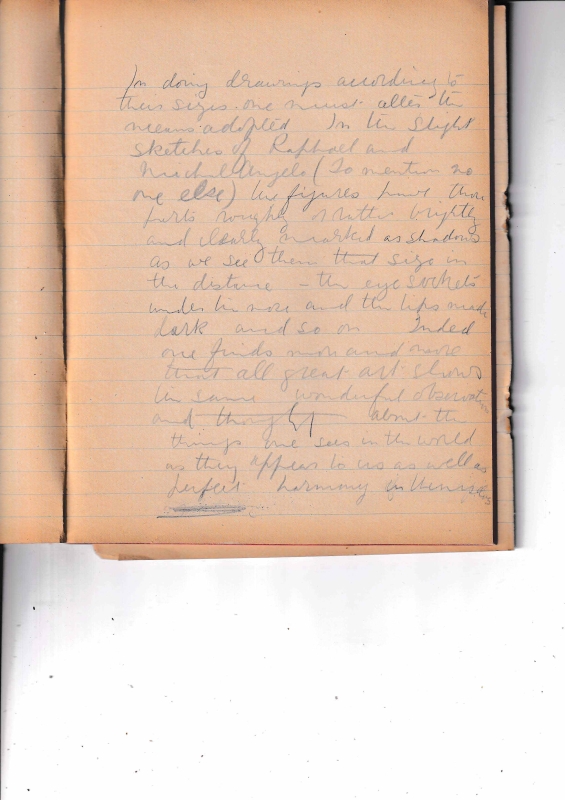 In doing drawings according to
their sizes one must alter the
means adopted In the slight
sketches of Raphael and
Michel Angelo (To mention no
one else) the figures have those
parts roughly or rather brightly
and clearly marked as shadows
as we see them that size in
the distance – the eye sockets
under the nose and the lips made
dark and so on Indeed
one finds more and more
that all great art shows
the same wonderful observation
and thought about the
things one sees in the world
as they appear to us as well as
perfect harmony in themselves